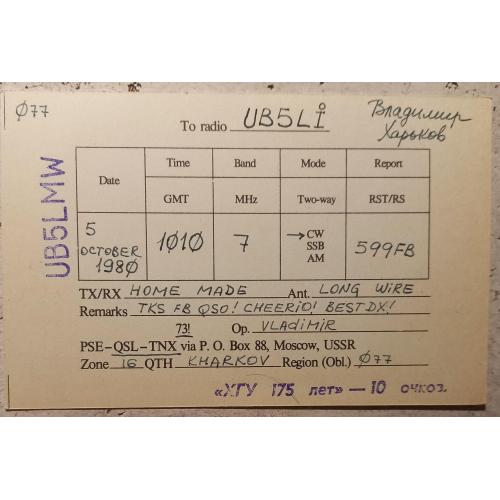 Ø77
To radio UB5LI
Владимир
Харьков
UB5LMW
Date
Time
GMT
Band
MHz
Mode
Two-way
Report
RST/RS
5
OCTOBER
1980
1Ø1Ø
7
→CW
SSB
AM
599FB
TX/RX HOME MADE Ant. LONG WIRE
Remarks TKS FB QSO! CHEERIO! BEST DX!
73! Op. VLADIMIR
PSE-QSL-TNX via P. O. Box 88, Moscow, USSR
Zone 16 QTH KHARKOV Region (Obl.) Ø77
«ХГУ 175 лет» — 10 очков.